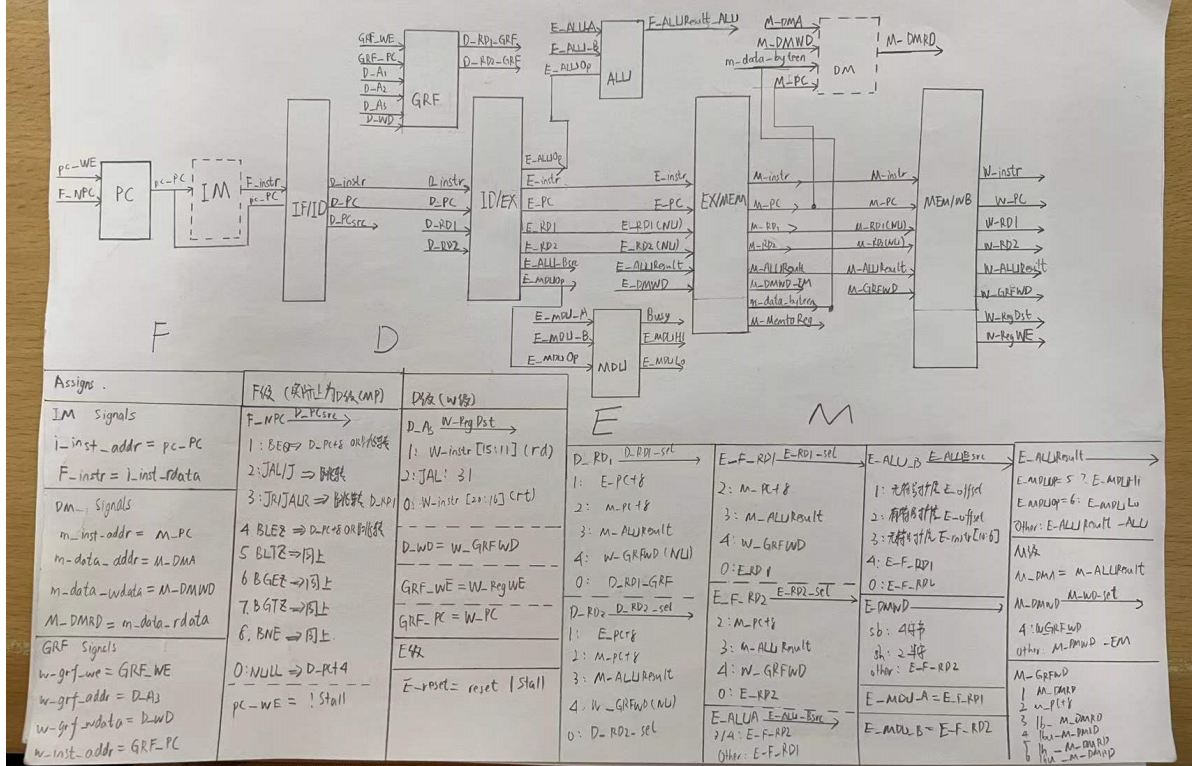 GRF_WE
GRF_PC
D_A1
D_A2
D_A3
D_WD
GRF
D_RD1_GRF
D_RD2_GRF
E_ALUA
E_ALU_B
E_ALUOp
ALU
E_ALUResult_ALU
M_DMA
M_DMWD
m_data_byteen
M_PC
DM
M_DMRD
pc_WE
F_NPC
PC
pc_PC
IM
F_instr
pc_PC
IF/ID
D_instr
D_PC
D_PCsrc
D_instr
D_PC
D_RD1
D_RD2
ID/EX
E_ALUOp
E_instr
E_PC
E_RD1
E_RD2
E_ALU_Bsrc
E_MDUOp
E_instr
E_PC
E_RD1(NU)
E_RD2(NU)
E_ALUResult
E_DMWD
EX/MEM
M_instr
M_PC
M_RD1
M_RD2
M_ALUResult
M_DMWD_EM
m_data_byteen
M_MemtoReg
M_instr
M_PC
M_RD1(NU)
M_ALUResult
M_GRFWD
MEM/WB
W_instr
W_PC
W_RD1
W_RD2
W_ALUResult
W_GRFWD
W_RegDst
W_RegWE
E_MDU_A
E_MDU_B
E_MDUOp
MDU
Busy
E_MDUHI
E_MDULo
F
D
E
M
Assigns.
IM Signals
i_inst_addr = pc_PC
F_instr = i_inst_rdata
DM Signals
m_inst_addr = M_PC
m_data_addr = M_DMA
m_data_wdata = M_DMWD
M_DMRD = m_data_rdata
GRF Signals
w_grf_we = GRF_WE
w_grf_addr = D_A3
w_grf_wdata = D_WD
w_inst_addr = GRF_PC
F级 (实际上为D级CMP)
F_NPC D_PCsrc
1: BEQ⇒ D_PC+8 OR 跳转
2: JAL/J ⇒ 跳转
3: JR/JALR ⇒ 跳转 D_RD1
4 BLEZ ⇒ D_PC+8 OR 跳转
5 BLTZ ⇒ 同上
6 BGEZ ⇒ 同上
7. BGTZ ⇒ 同上
6. BNE ⇒ 同上
0: NULL ⇒ D_PC+4
pc_WE = !Stall
D级 (W级)
D_A3 W_RegDst
1: W_instr [15:11] (rd)
2: JAL: 31
0: W_instr [20:16] (rt)
D_WD = W_GRFWD
GRF_WE = W_RegWE
GRF_PC = W_PC
E级
E_reset = reset | Stall
D_RD1 D_RD1_sel
1: E_PC+8
2: M_PC+8
3: M_ALUResult
4: W_GRFWD (NU)
0: D_RD1_GRF
D_RD2 D_RD2_sel
1: E_PC+8
2: M_PC+8
3: M_ALUResult
4. W_GRFWD(NU)
0: D_RD2_sel
E_F_RD1 E_RD1_sel
2: M_PC+8
3: M_ALUResult
4: W_GRFWD
0: E_RD1
E_F_RD2 E_RD2_sel
2: M_PC+8
3: M_ALUResult
4: W_GRFWD
0: E_RD2
E_ALUA E_ALU_Bsrc
3/4: E_F_RD2
Other: E_F_RD1
E_ALU_B E_ALUBsrc
1: 无符号扩展 E_offset
2: 有符号扩展 E_offset
3: 无符号扩展 E_instr[10:6]
4: E_F_RD1
0: E_F_RD2
E_DMWD
sb: 4字节
sh: 2半字
other: E_F_RD2
E_MDU_A = E_F_RD1
E_MDU_B = E_F_RD2
E_ALUResult
E_MDUOP = 5 ? E_MDUHi
E_MDUOP = 6: E_MDULo
Other: E_ALUResult_ALU
M级
M_DMA = M_ALUResult
M_DMWD M_WD_sel
4: W_GRFWD
Other: M_DMWD_EM
M_GRFWD
1 M_DMRD
2 M_PC+8
3 lb_M_DMRD
4 lbu_M_DMRD
5 lh_M_DMRD
6 lhu_M_DMRD